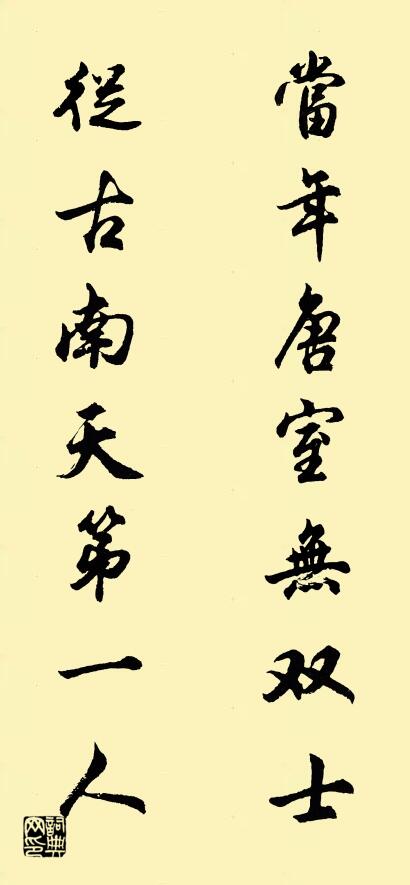 當年唐室無双士
從古南天第一人
詞典网印